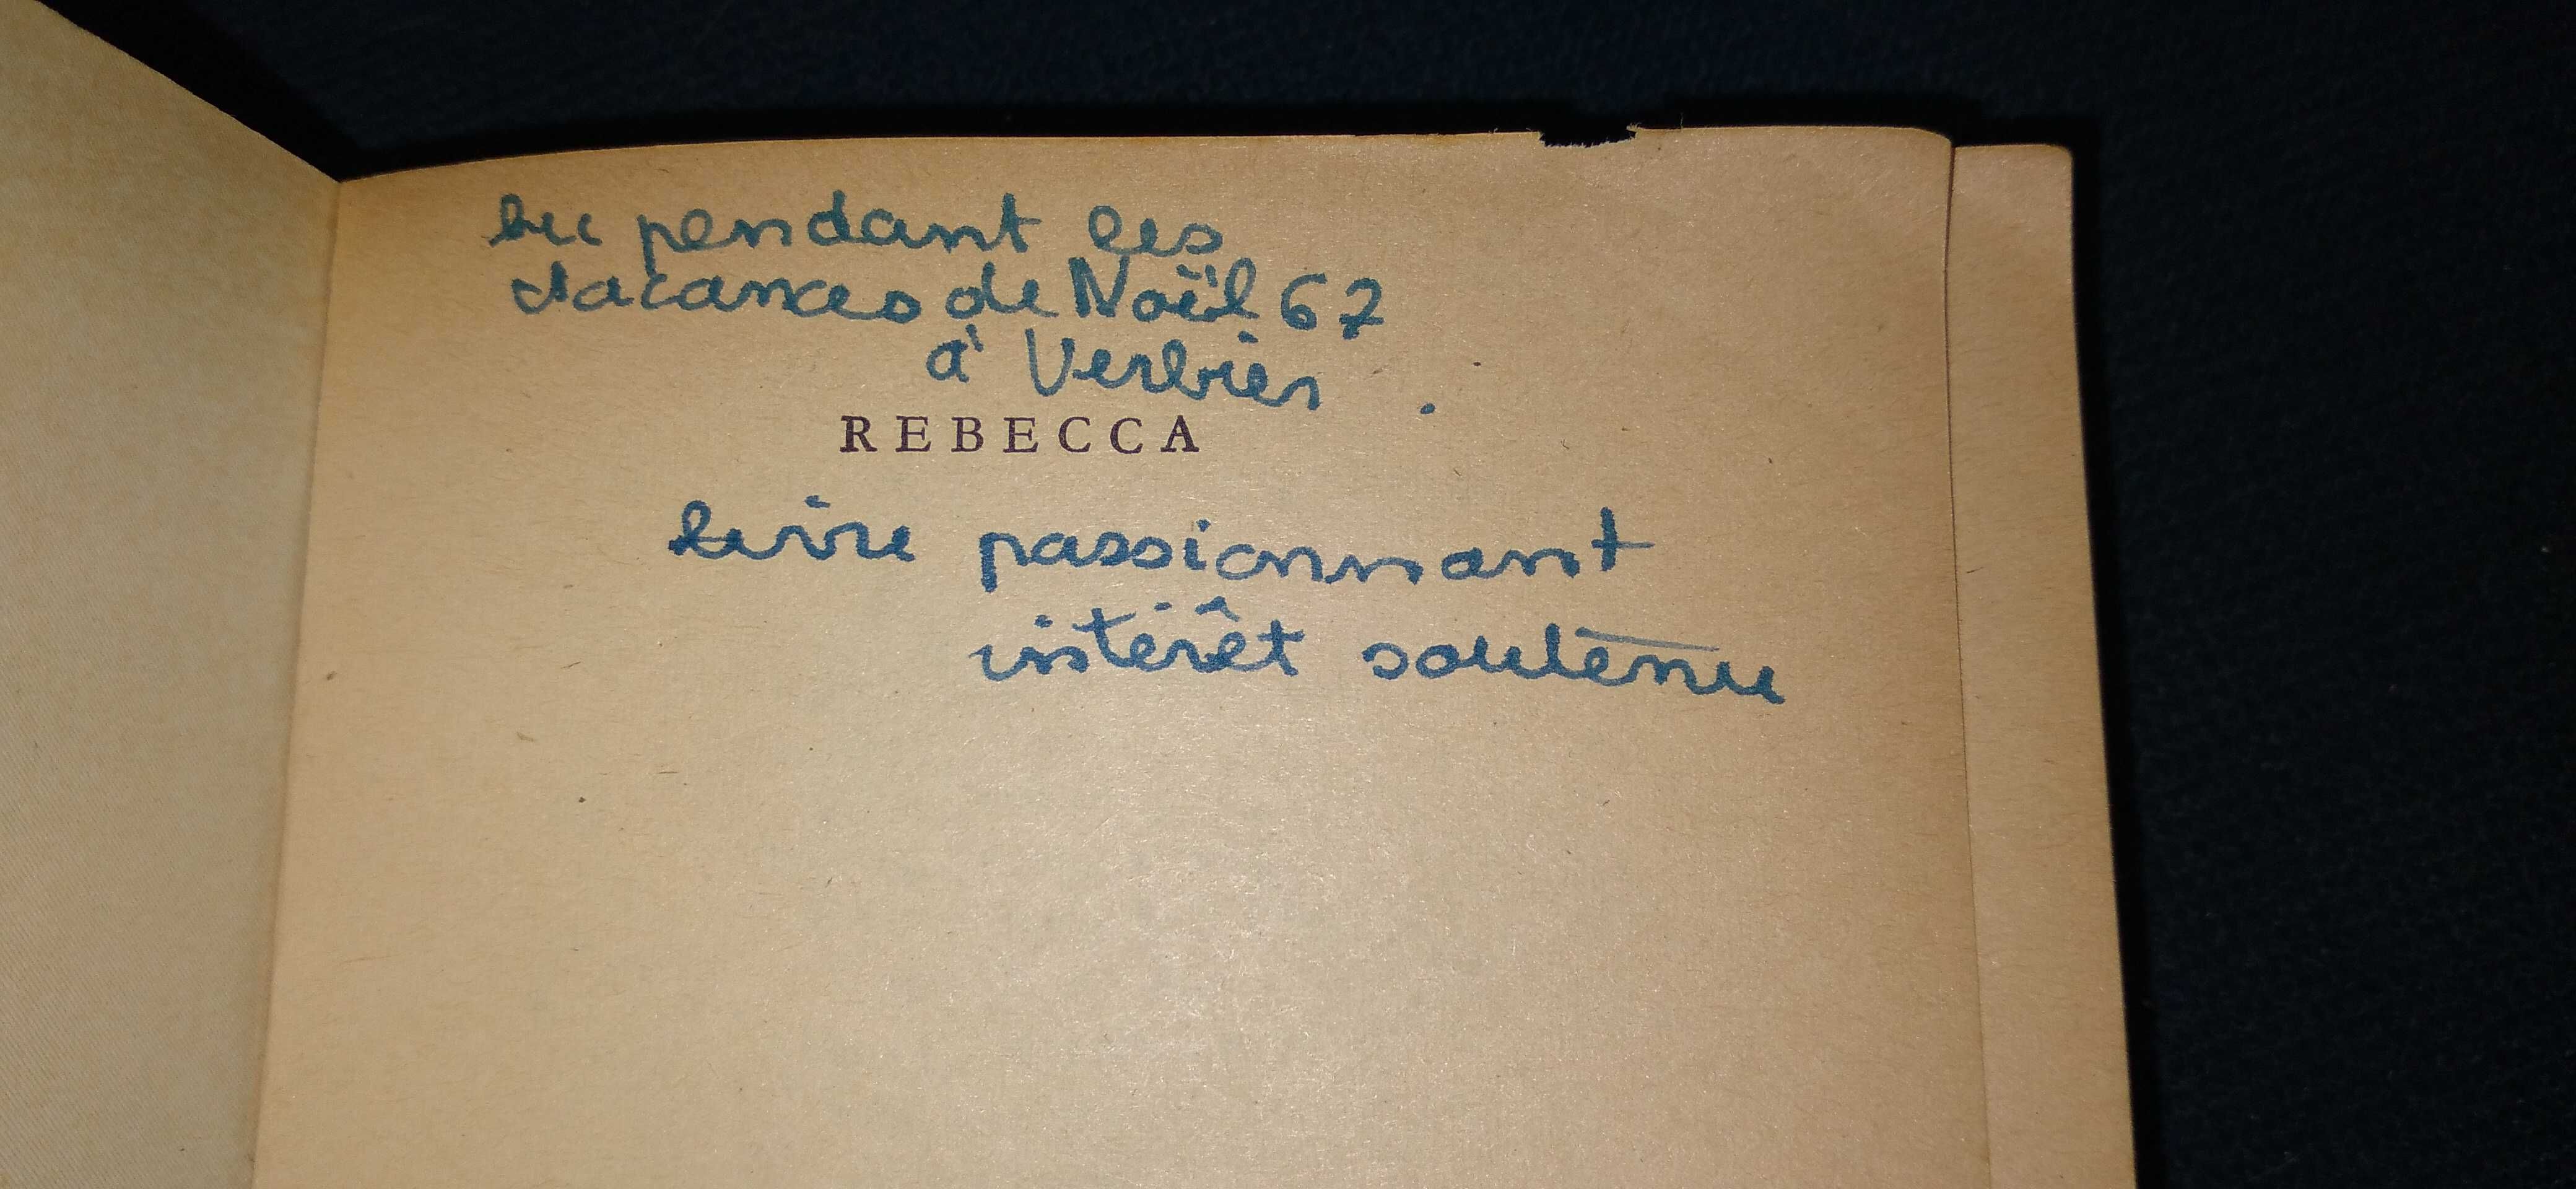 lu pendant les
vacances de Noël 67
à Verbier.
REBECCA
livre passionnant
intérêt soutenu